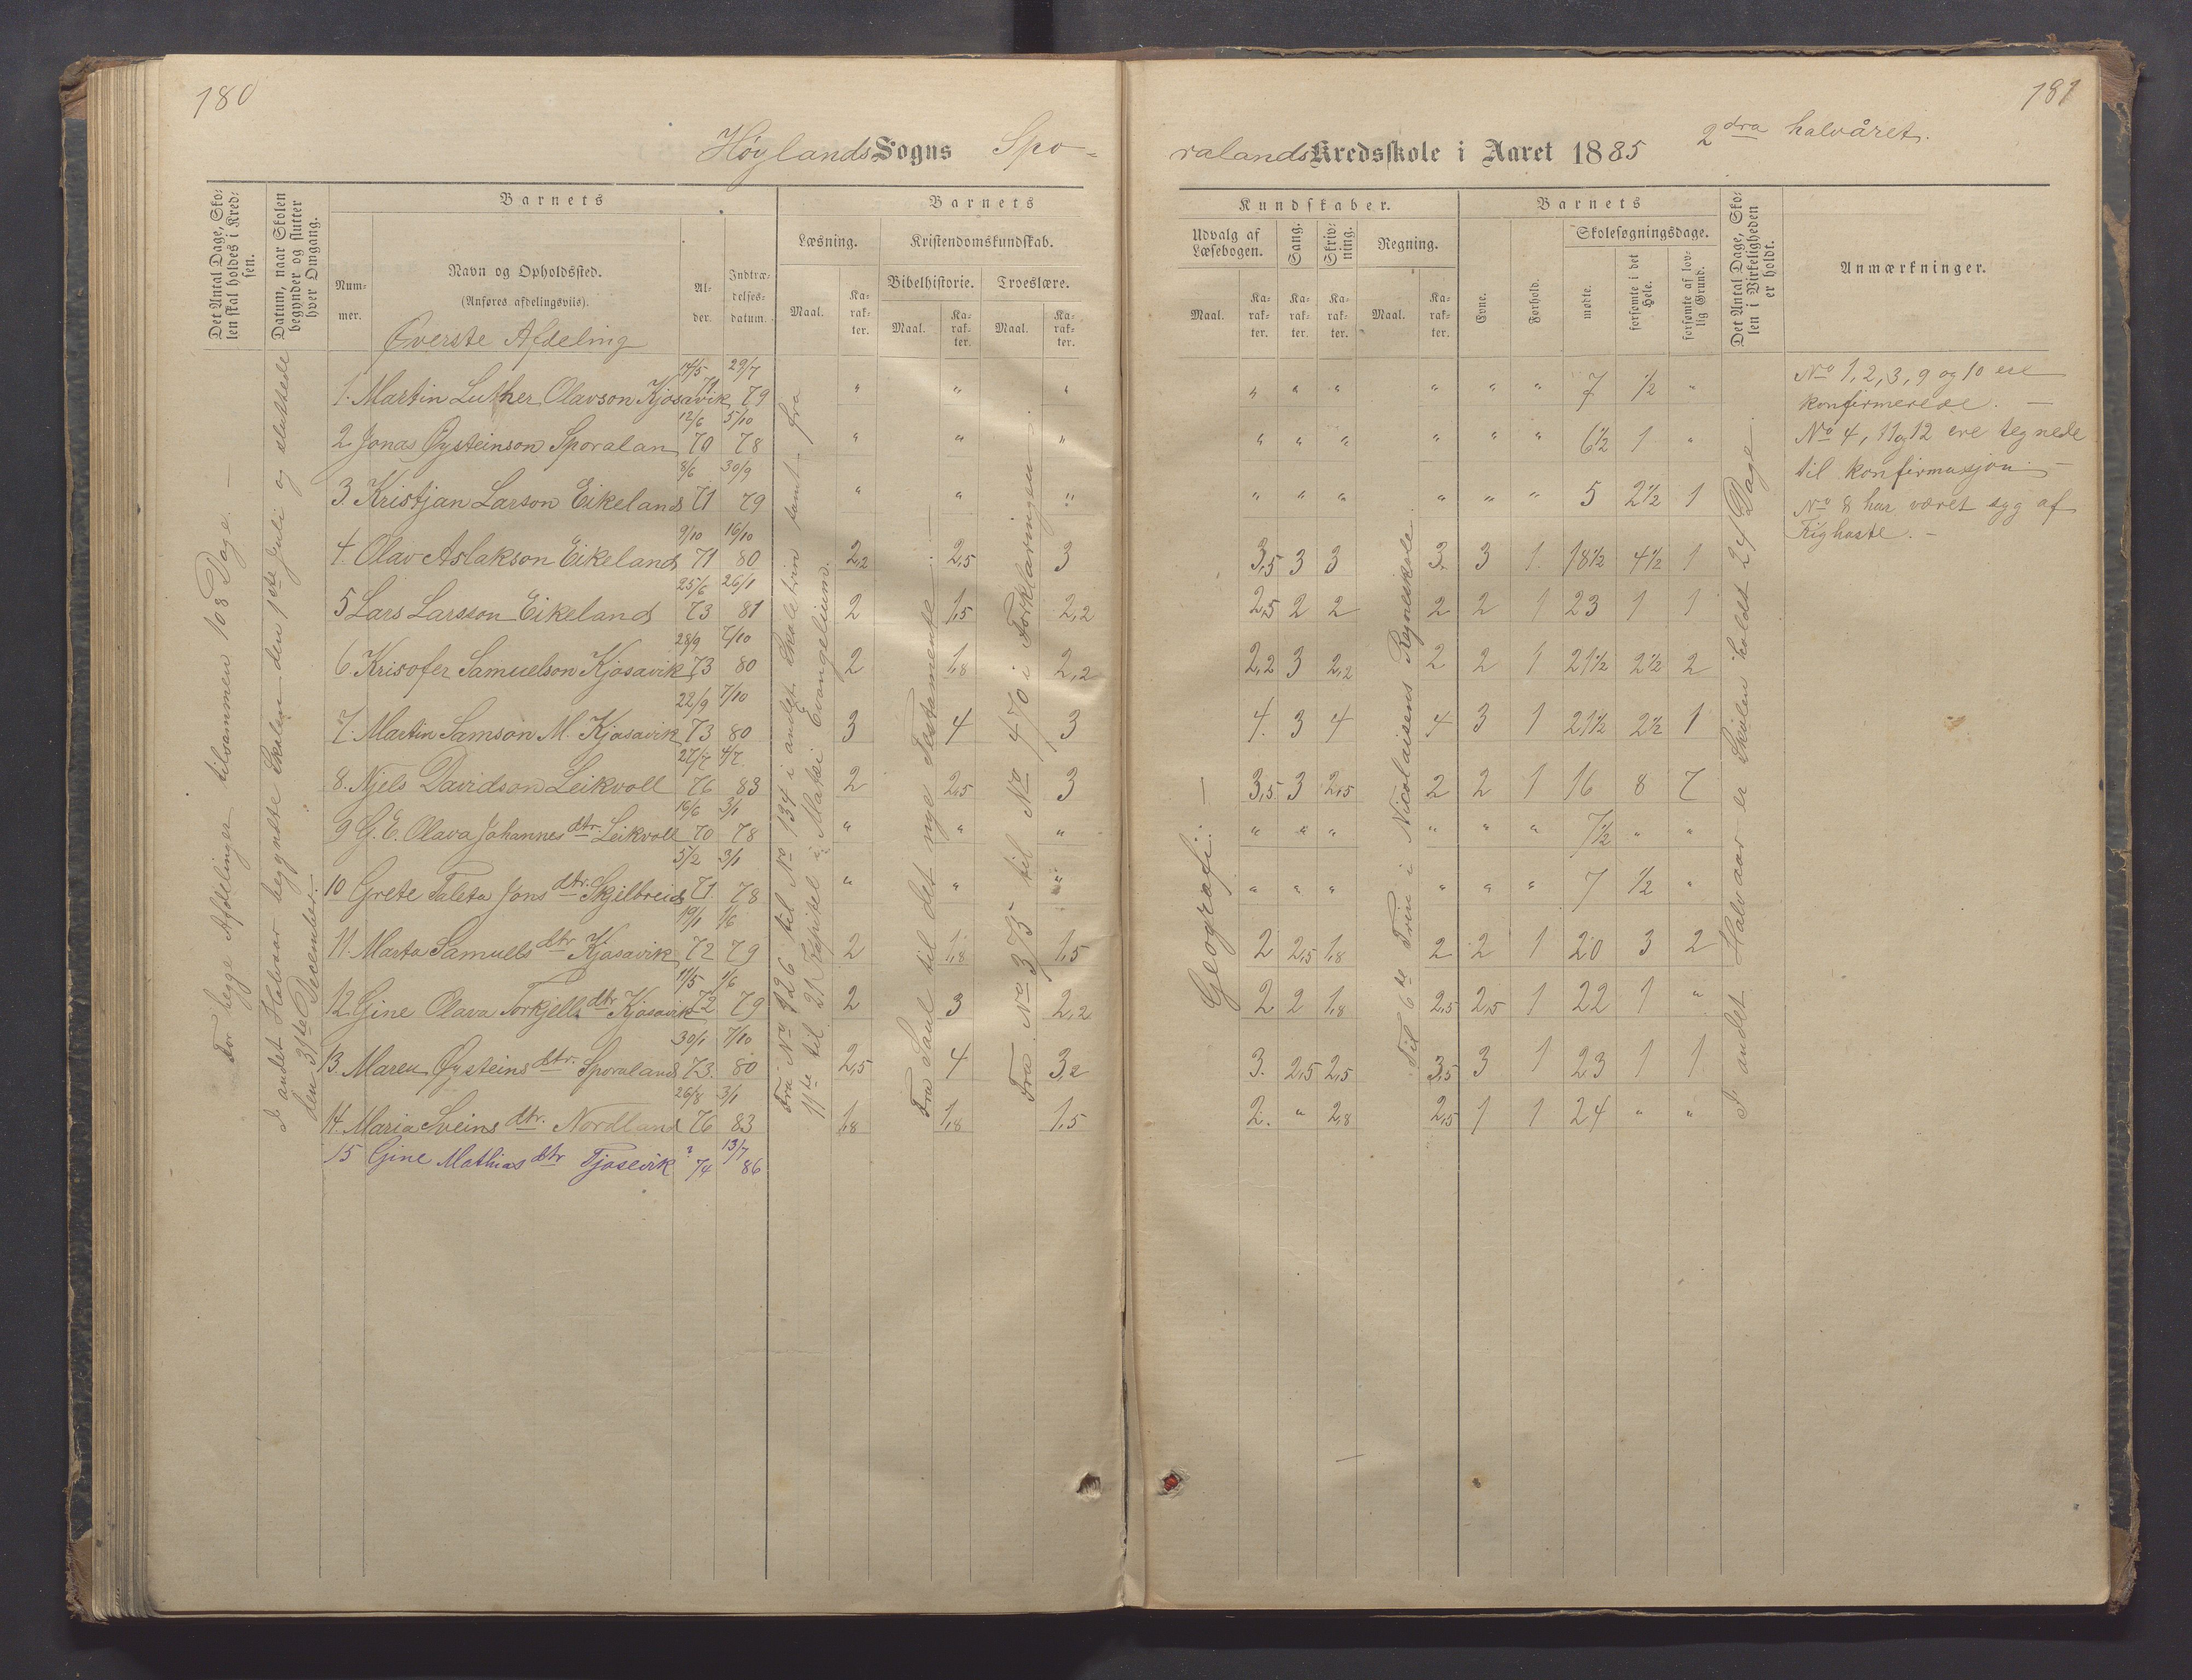 180
181
Høylands Sogns Spo-
ralands Kredsskole i Aaret 1885 2dra halvåret.
Det Antal Dage, Sko-
len skal holdes i Kred-
sen.
Datum, naar Skolen
begynder og slutter
hver Omgang.
Barnets
Num-
mer.
Navn og Opholdssted.
(Anføres afdelingsviis).
Al-
der.
Indtræ-
delses-
datum.
Barnets
Læsning.
Kristendomskundskab.
Bibelhistorie. Troeslære.
Maal. Ka-
rak-
ter.
Maal. Ka-
rak-
ter.
Maal. Ka-
rak-
ter.
Kundskaber.
Udvalg af
Læsebogen.
Sang.
Skriv-
ning.
Regning.
Maal. Ka-
rak-
ter.
Ka-
rak-
ter.
Ka-
rak-
ter.
Maal. Ka-
rak-
ter.
Barnets
Evne.
Forhold.
Skolesøgningsdage.
mødte.
forsømte i det
Hele.
forsømte af lov-
lig Grund.
Det Antal Dage, Sko-
len i Virkeligheden
er holdt.
Anmærkninger.
Øverste Afdeling
For begge Afdelinger tilsammen 108 Dage. —
I andet Halvaar begyndte Skolen den 1ste Juli og sluttede
den 31te December. —
Fra No 126 til No 134 i andet Skoletrin samt fra
11te til 21 Kapitel i Mattei Evangelium.
Fra Saul til det nye Testamente. —
Fra No 373 til No 470 i Forklaringen.
Geografi. —
Til 6te Trin i Nicolaisens Regneskole.
I andet Halvaar er Skolen holdt 24 Dage.
1. Martin Luther Olavson Kjosavik 14/5 71 29/7 79 " " " " " " " " " 7 1/2 "
2. Jonas Øysteinson Sporalan 12/6 70 5/10 78 " " " " " " " " " 6 1/2 1 "
3. Kristjan Larson Eikeland 8/6 71 30/9 79 " " " " " " " " " 5 2 1/2 1
4. Olav Aslakson Eikeland 9/10 71 16/10 80 2,2 2,5 3 3,5 3 3 3. 3 1. 18 1/2 4 1/2 1
5 Lars Larsson Eikeland 25/6 73 26/1 81 2 1,5 2,2 2,5 2 2 2 2 1 23 1 1
6. Krisofer Samuelson Kjosavik 28/9 73 7/10 80 2 1,8 2,2 2,2 3 2,2 2 2 1 21 1/2 2 1/2 2
7. Martin Samson M. Kjosavik 22/9 73 7/10 80 3 4 3 4. 3 4 4 3 1 21 1/2 2 1/2 1
8. Njels Davidson Leikvoll 27/7 76 4/7. 83 2 2,5 3 3,5 3 2,5 2 2 1 16 8 7
9 G. E. Olava Johannes dtr. Leikvoll 16/6 70 3/1 78 " " " " " " " " " 7 1/2 " "
10 Grete Taleta Jons dtr. Skjelbreid 5/2 71. 3/1 78 " " " " " " " " " 7 1/2 "
11. Marta Samuels dtr Kjosavik 19/1 72 1/6 79 2 1,8 1,5 2 2,5 1,8 2 2 1 20 3 2
12. Gine Olava Torkjells dtr Kjosavik 11/5 72 1/6 79 2 3 2,2 2 2 1,8 2,5 2,5 1 22 1 "
13. Maren Øysteins dtr. Sporaland 30/1 73. 7/10 80 2,5 4 3,2 3. 2,5 2,5 3,5 3 1 23 1 1
14. Maria Sveins dtr. Nordland 26/8 76 3/1 83 1,8 1,8 1,5 2. " 2,8 2,5 1 1 24 " "
15 Gine Mathias dtr Tjosevik ? 74 13/7 86
No 1, 2, 3, 9 og 10 ere
konfirmerede. —
No 4, 11 og 12 ere tegnede
til konfirmasjon. —
No 8 har været syg af
Kighoste. —